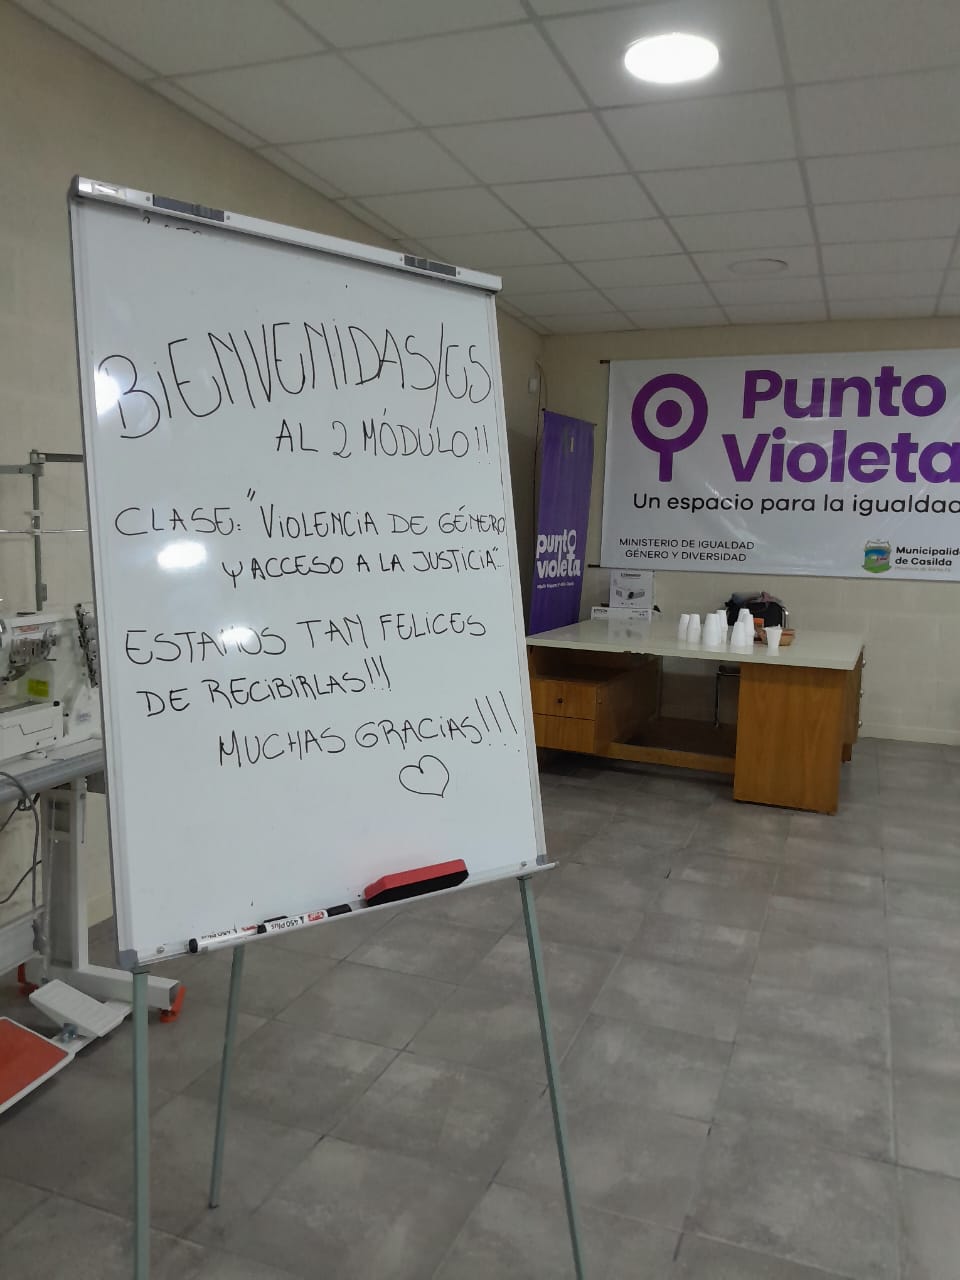 BIENVENIDAS/ES
AL 2 MÓDULO!!
CLASE: "VIOLENCIA DE GÉNERO
Y ACCESO A LA JUSTICIA"
ESTAMOS TAN FELICES
DE RECIBIRLAS!!!
MUCHAS GRACIAS!!!
Punto
Violeta
Un espacio para la igualdad
MINISTERIO DE IGUALDAD
GÉNERO Y DIVERSIDAD
Municipalid
de Casilda
punto
violeta
450 Plus